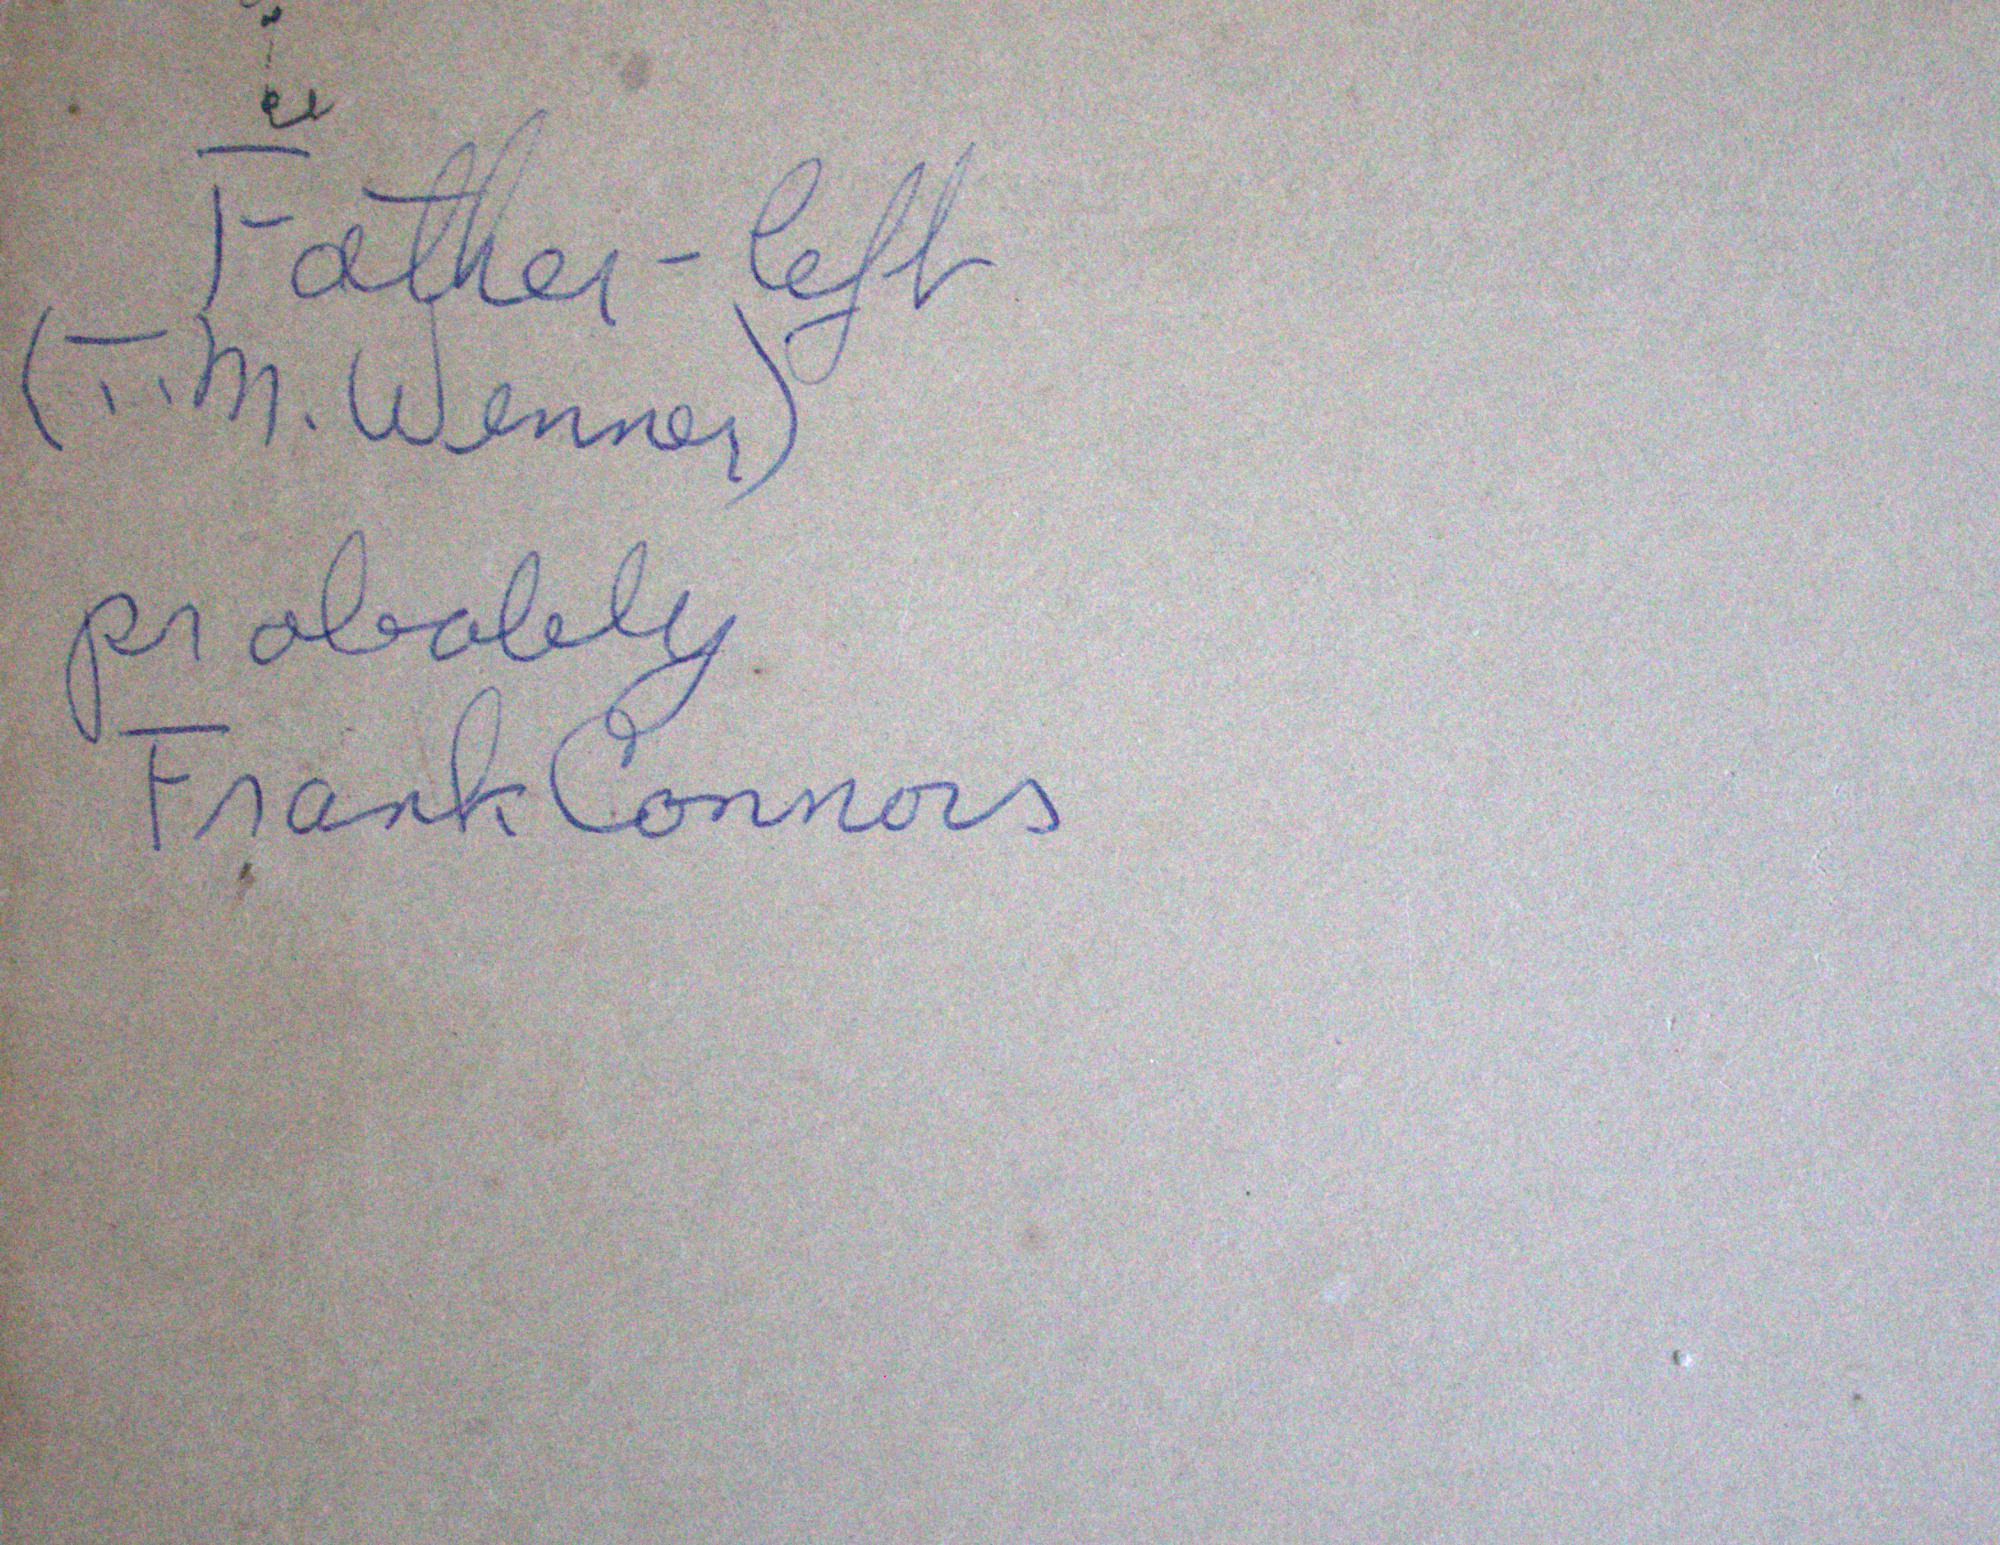 Father - left
(T. M. Wenner)
probably
Frank Connors